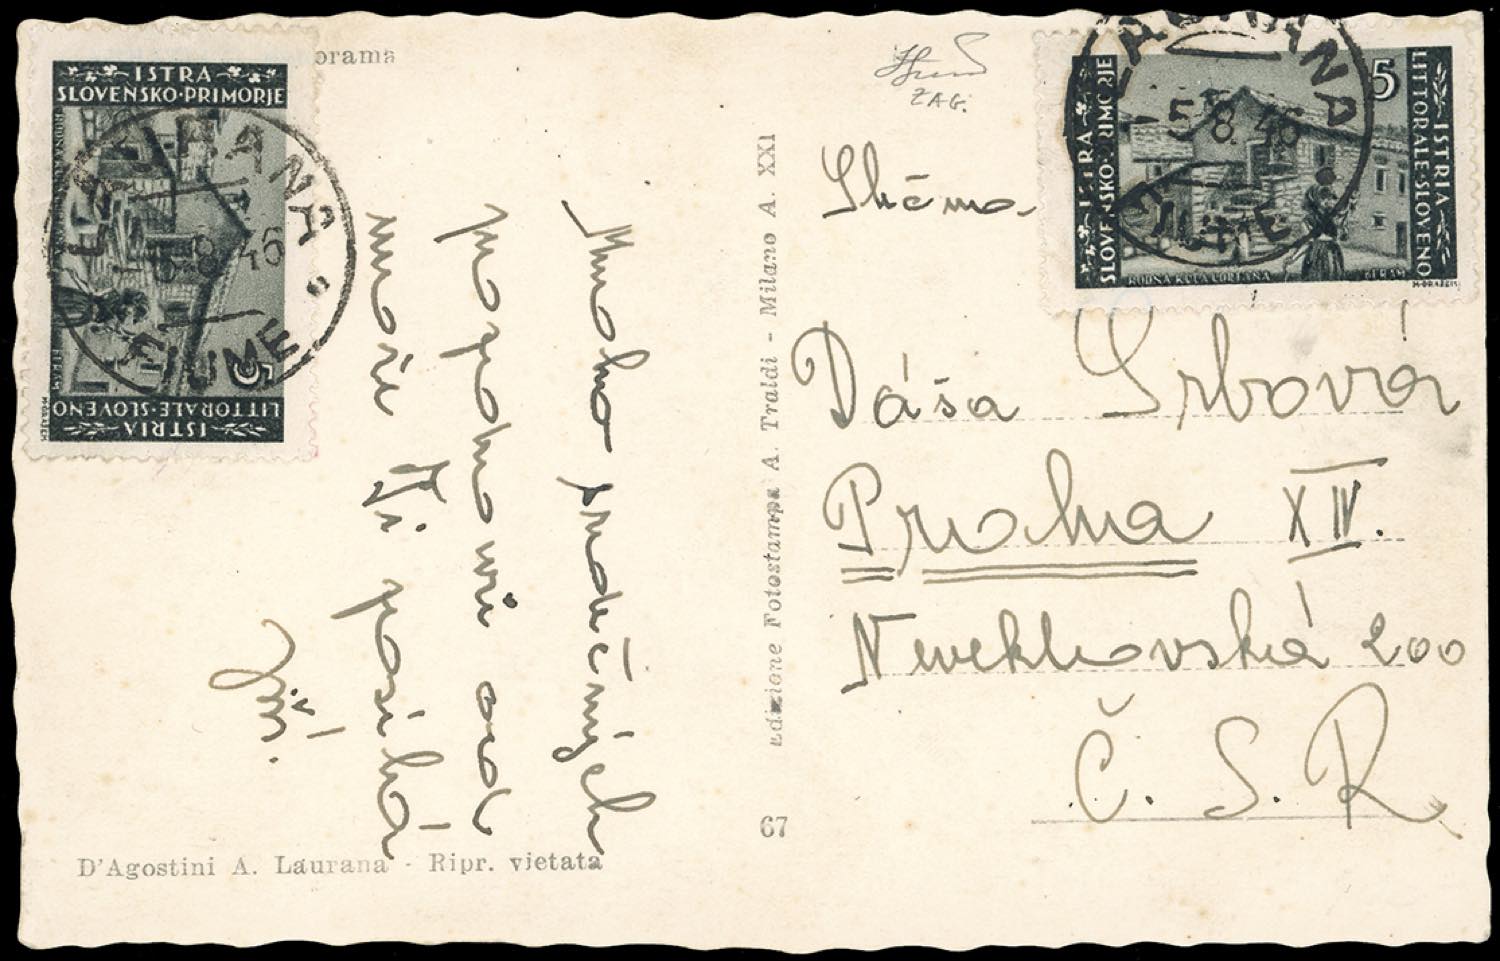 orama
ISTRA
SLOVENSKO·PRIMORJE
LAURANA
5.8.46
FIUME
5
BERAM
LITTORALE·SLOVENO
ISTRIA
Mnoho srdečných
pozdravů od
moře Ti posílá
Jiří.
D'Agostini A. Laurana - Ripr. vietata
67
Edizione Fotostampa A. Traldi - Milano A. XXI
ZAG.
ISTRA
SLOVENSKO·PRIMORJE
LAURANA
-5.8.46
FIUME
5
BERAM
ISTRIA
LITTORALE·SLOVENO
Slečna
Dáša Srbová
Praha XIV.
200
Č. S. R.